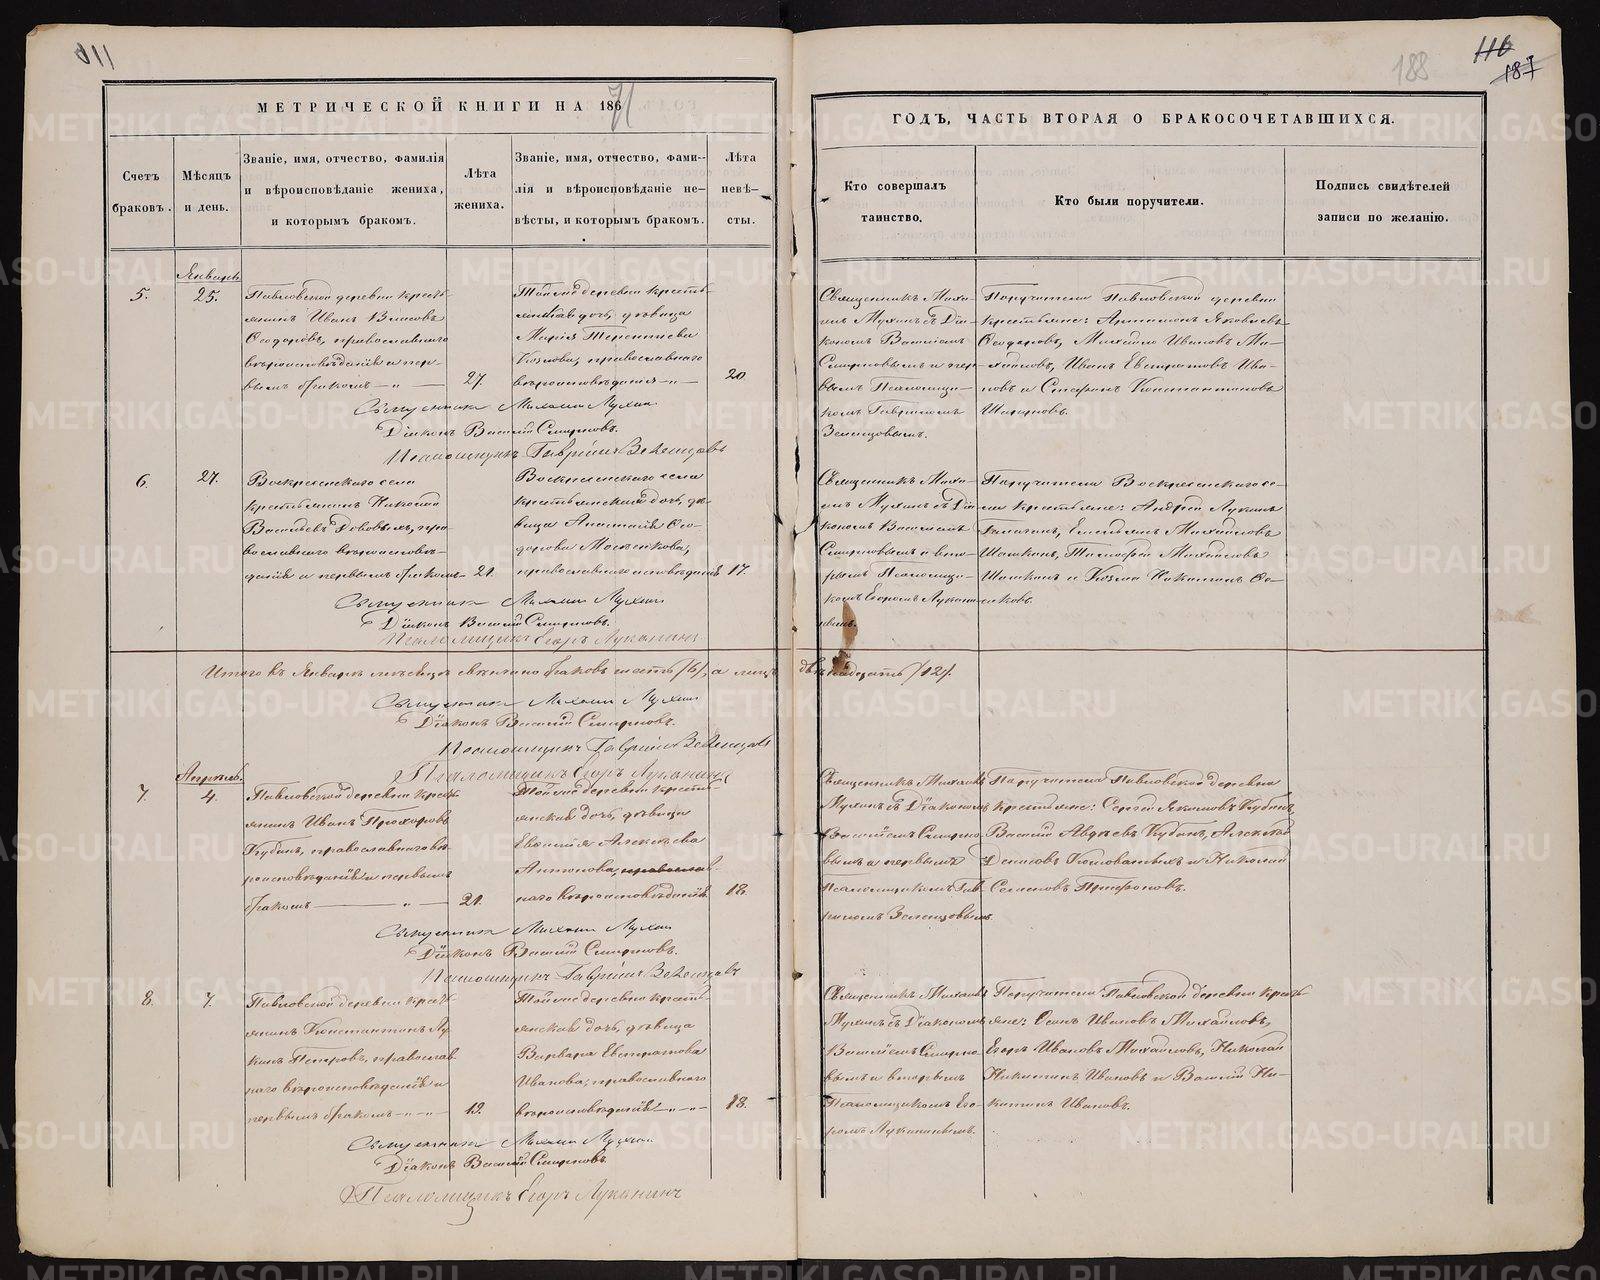 111
МЕТРИЧЕСКОЙ КНИГИ НА 186
71
Счетъ
браковъ.
Мѣсяцъ
и день.
Званіе, имя, отчество, фамилія
и вѣроисповѣданіе жениха,
и которымъ бракомъ.
Лѣта
жениха.
Званіе, имя, отчество, фами-
лія и вѣроисповѣданіе не-
вѣсты, и которымъ бракомъ.
Лѣта
невѣ-
сты.
188
116
187
ГОДЪ, ЧАСТЬ ВТОРАЯ О БРАКОСОЧЕТАВШИХСЯ.
Кто совершалъ
таинство.
Кто были поручители.
Подпись свидѣтелей
записи по желанію.
Январь
5.
25.
Павловской деревни кресть-
янинъ Иванъ Власовъ
Ѳеодоровъ, православнаго
вѣроисповѣданія и пер-
вымъ бракомъ
27.
Той же деревни кресть-
янская дочь, дѣвица
Марія Терентіева
Козлова, православнаго
вѣроисповѣданія
20
Священникъ Миха-
илъ Мухинъ съ Діа-
кономъ Василіемъ
Смирновымъ и пер-
вымъ Псаломщи-
комъ Гавріиломъ
Зеленцовымъ.
Поручители Павловской деревни
крестьяне: Артамонъ Яковлевъ
Ѳеодоровъ, Михаилъ Ивановъ Ми-
хайловъ, Иванъ Евстратовъ Ива-
новъ и Стефанъ Константиновъ
Священникъ Михаилъ Мухинъ
Діаконъ Василій Смирновъ.
Псаломщикъ Гавріилъ Зеленцовъ
6.
27.
Воскресенскаго села
крестьянинъ Николай
Васильевъ, пра-
вославнаго вѣроисповѣ-
данія и первымъ бракомъ
21.
Воскресенскаго села
крестьянская дочь, дѣ-
вица Анастасія Ѳео-
дорова
православнаго исповѣданія
17.
Священникъ Миха-
илъ Мухинъ съ Діа-
кономъ Василіемъ
Смирновымъ и вто-
рымъ Псаломщи-
комъ Егоромъ Лукани-
нымъ.
Поручители Воскресенскаго се-
ла крестьяне: Андрей Лукинъ
Емельянъ Михайловъ
Шашкинъ, Тимофей Михайловъ
Шашкинъ и Козма Никитинъ
Священникъ Михаилъ Мухинъ
Діаконъ Василій Смирновъ.
Псаломщикъ Егоръ Луканинъ.
Итого въ Январѣ мѣсяцѣ свѣнчано браковъ шесть /6/, а лицъ двѣнадцать /12/.
Священникъ Михаилъ Мухинъ
Діаконъ Василій Смирновъ.
Псаломщикъ Гавріилъ Зеленцовъ
Псаломщикъ Егоръ Луканинъ
Апрѣль.
7.
4.
Павловской деревни кресть-
янинъ Иванъ Прохоровъ
Кубинъ, православнаго вѣ-
роисповѣданія и первымъ
бракомъ
21.
Той же деревни кресть-
янская дочь, дѣвица
Евѳимія Алексѣева
Антонова, православ-
наго вѣроисповѣданія.
18.
Священникъ Михаилъ
Мухинъ съ Діакономъ
Василіемъ Смирно-
вымъ и первымъ
Псаломщикомъ Гав-
ріиломъ Зеленцовымъ.
Поручители Павловской деревни
крестьяне: Сергей Якимовъ Кубинъ,
Василій Авдѣевъ Кубинъ, Алексѣй
Денисовъ и Николай
Семеновъ Трифоновъ.
Священникъ Михаилъ Мухинъ
Діаконъ Василій Смирновъ.
Псаломщикъ Гавріилъ Зеленцовъ
8.
7.
Павловской деревни кресть-
янинъ Константинъ Лу-
кинъ Петровъ, православ-
наго вѣроисповѣданія и
первымъ бракомъ
19.
Той же деревни кресть-
янская дочь, дѣвица
Варвара Евстратова
Иванова, православнаго
вѣроисповѣданія
18.
Священникъ Михаилъ
Мухинъ съ Діакономъ
Василіемъ Смирно-
вымъ и вторымъ
Псаломщикомъ Его-
ромъ Луканинымъ.
Поручители Павловской деревни кресть-
яне: Осипъ Ивановъ Михайловъ,
Егоръ Ивановъ Михайловъ, Николай
Никитинъ Ивановъ и Василій Ни-
китинъ Ивановъ.
Священникъ Михаилъ Мухинъ
Діаконъ Василій Смирновъ.
Псаломщикъ Егоръ Луканинъ
METRIKI.GASO-URAL.RU